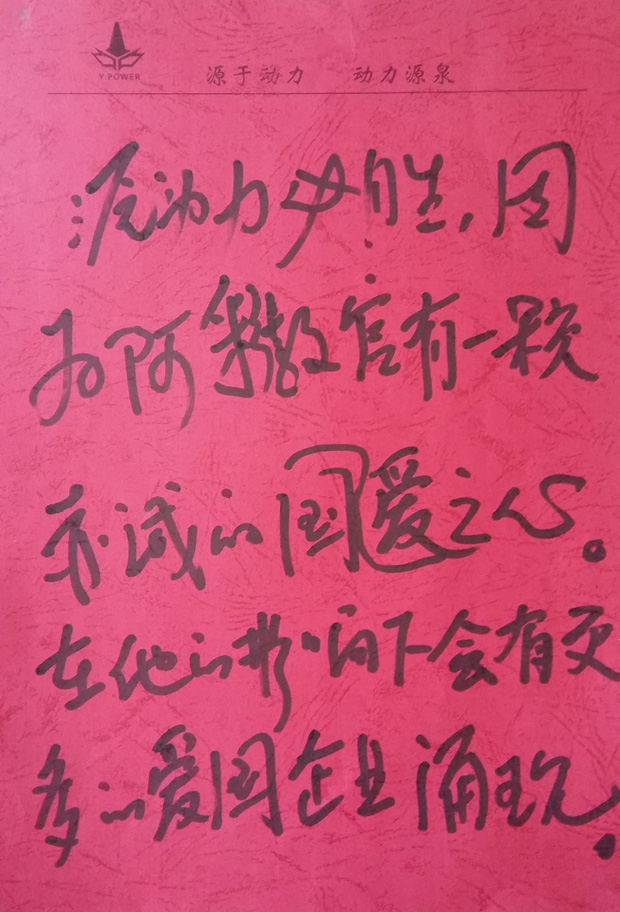 Y.POWER
源于动力 动力源泉
源动力必胜,因
为阿教官有一颗
赤诚的国爱之心。
在他的影响下会有更
多的爱国企业涌现。